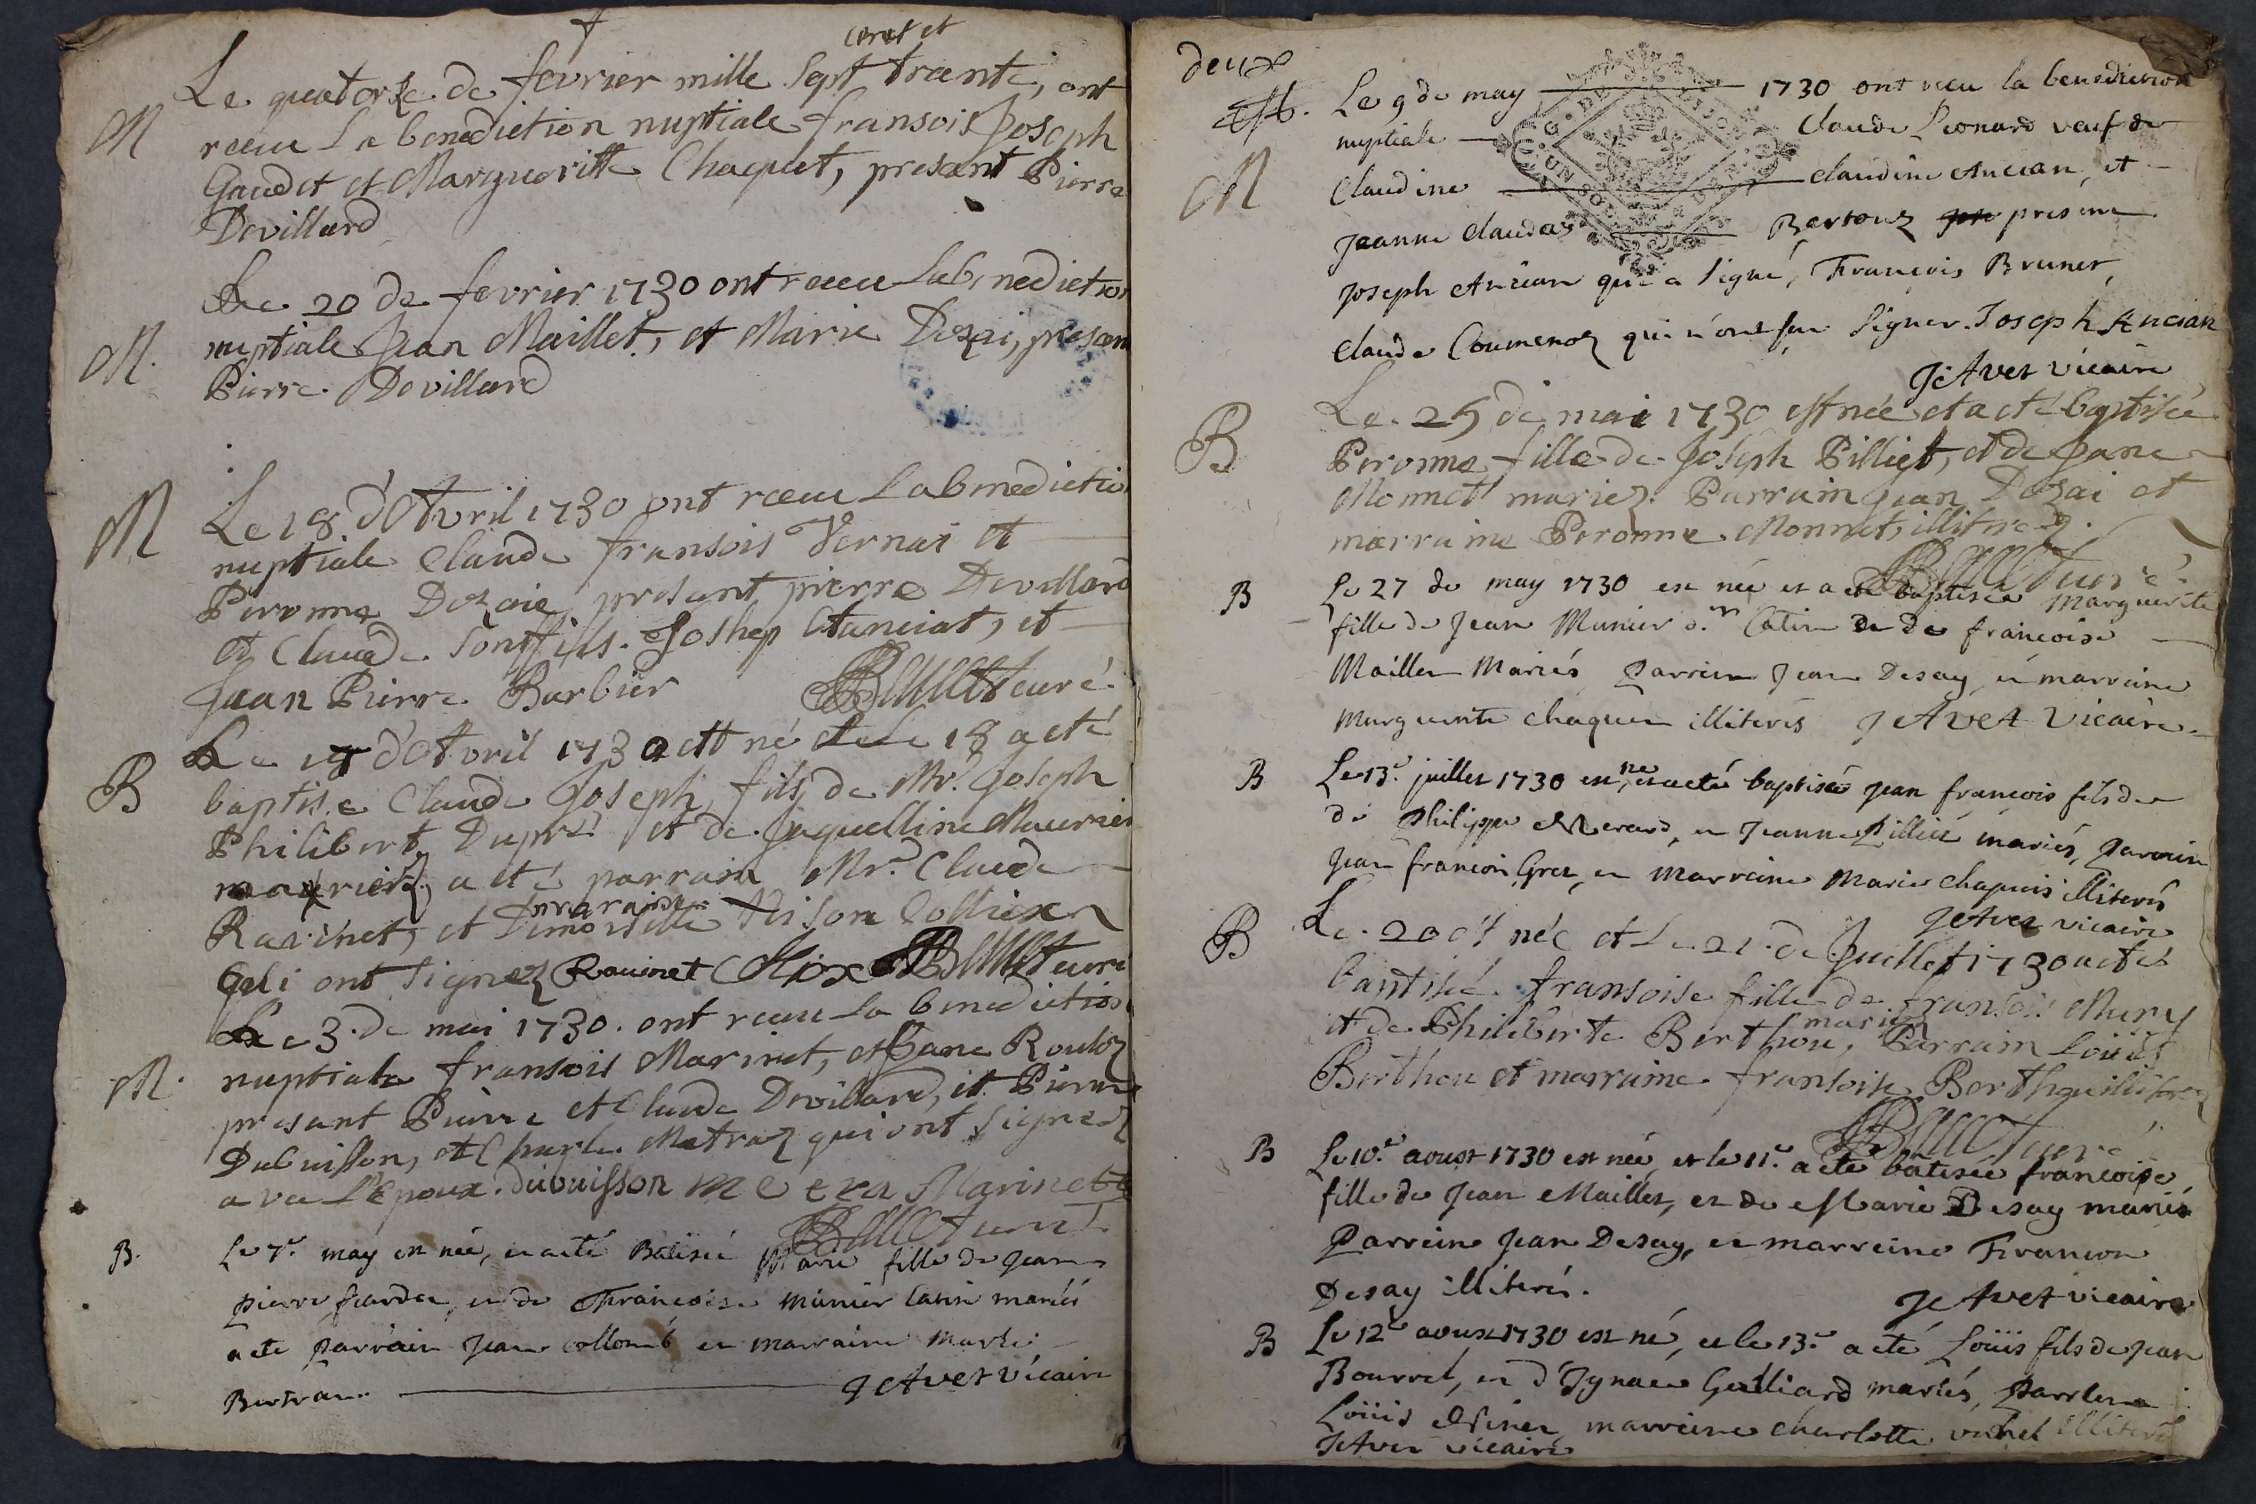 cent et
Le quatorze de fevrier mille sept trante, ont
M receu La benediction nuptiale fransois Joseph
Gaudet et Margueritte Chaquet, present Pierre
Devillard
Le 20 de fevrier 1730 ont receu La benediction
M. nuptiale Jean Maillet, et Marie Dezai, presan
Pierre Devillard
M Le 18 d'Avril 1730 ont receu La benedictio
nuptiale Claude fransois Vernai et
Peronne Dezaie, present pierre Devillard
et Claude son fils. Joshep Anciat, et
Jean Pierre Barbier curé
Le d'Avril 1730 est né et le 18 a eté
B baptise Claude Joseph, fils de Mr. Joseph
Philibert Dupré et de Jaquelline Meunier
mariez, a eté parrain Mr. Claude
marraine
Ravinet, et Demoiselle
Qui ont signez Rauinet curé
Le 3. de mai 1730. ont receu La benediction
M. nuptiale fransois Marinet, et Jane Roulez
present Pierre et Claude Devillard, et Pierre
Dubuisson, et Charle Metraz qui ont signez
avec L'Epoux. dubuisson Marinet
curé
B. Le 7e. may est née, et a eté Batisée Marie fille de Jean
pierre, et de Francoise Munier Catin mariés
a ete parrain Jean collomb et marraine
Bertran J Avet Vicaire
deux
Le 9 de may 1730 ont receu la benediction
nuptiale Claude Leonard veuf de
M Claudine claudine Ancian, et
Jeanne Claudas Bertouz presens
Joseph Ancian qui a signé, François Brunet,
Claude Coumenoz qui n'ont seu signer. Joseph Ancian
J Avet vicaire
B Le 25 de mai 1730 est née et a eté baptisée
Peronne fille de Joseph Pilliet, et de Jane
Monnet mariez. Parrain Jean Dezai et
marraine Peronne Monnet, illitrez.
curé
B Le 27 de may 1730 est née et a eté baptisée Marguerite
fille de Jean Munier d.t Catin et de françoise
Maillet Mariés parrein Jean Desay, et marraine
Marguerite chaquet illiterés J Avet Vicaire
né
B Le 13e. juillet 1730 est, et a eté baptisé jean françois fils de
de philippe, et Jeanne Pilliet mariés, parrein
jean francois Gret, et marraine Marie chapuis illiterés
J Avet vicaire
B Le 20 est née et Le 21 de Juillet 1730 a eté
baptisé fransoise fille de fransois Mury
mariez
et de Philiberte Berthou, Parrain Loüis
Berthou et marraine fransoise Berthou illitrez
curé
B Le 10e. aoust 1730 est née, et le 11e. a eté batisée françoise
fille de Jean Maillet, et de Marie Desay mariés
Parrein Jean Desay, et marreine Francon
Desay illiterés.
J Avet vicaire
B Le 12e aoust 1730 est né, et le 13e. a eté Loüis fils de Jean
Bourrel, et d'Ignace Guilliard mariés, Parrein
Loüis marreine charlotte illiterés
J Avet vicaire